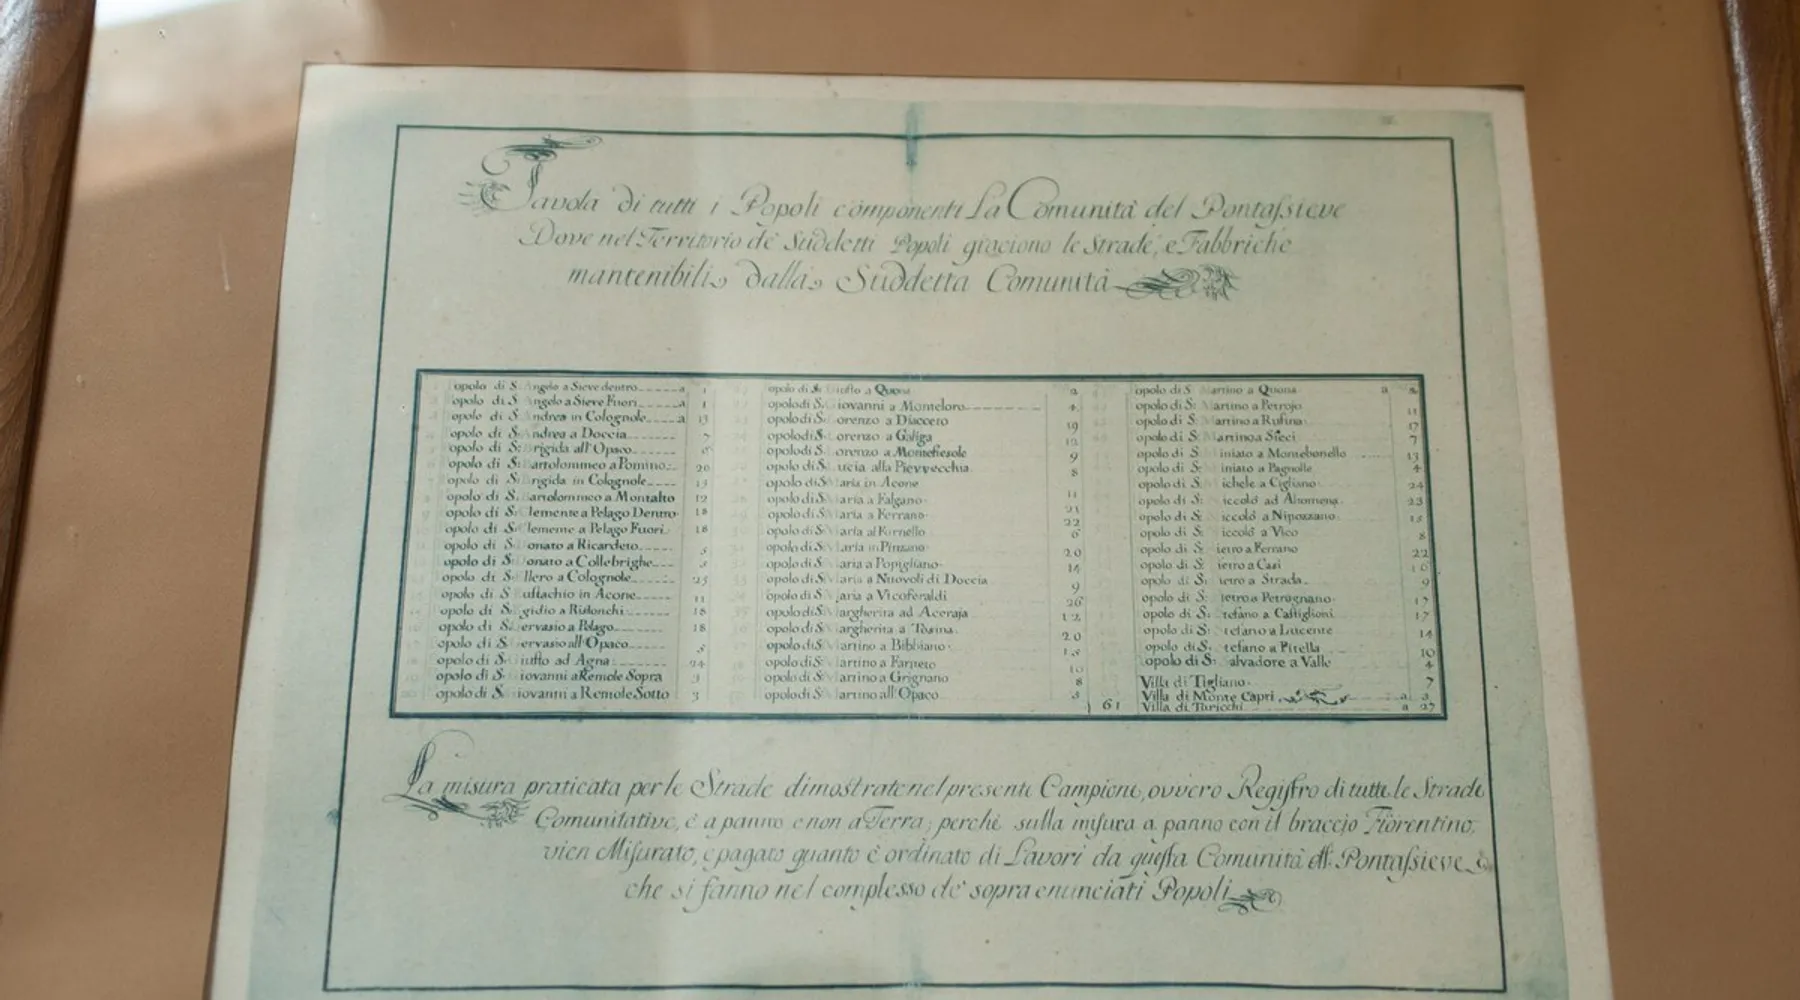 Tavola di tutti i Popoli componenti La Comunità del Pontassieve
Dove nel Territorio de Suddetti Popoli giaciono le Strade, e Fabbriche
mantenibili dalla Suddetta Comunità
opolo di S. Angelo a Sieve dentro a 1
opolo di S. Angelo a Sieve Fuori a 1
opolo di S. Andrea in Colognole a 13
opolo di S. Andrea a Doccia 7
opolo di S. Brigida all'Opaco
opolo di S. Bartolommeo a Pomino 20
opolo di S. Brigida in Colognole 13
opolo di S. Bartolommeo a Montalto 12
opolo di S. Clemente a Pelago Dentro 18
opolo di S. Clemente a Pelago Fuori 18
opolo di S. Donato a Ricardeto 5
opolo di S. Donato a Collebrighe
opolo di S. Ellero a Colognole 25
opolo di S. Eustachio in Acone 11
opolo di S. Egidio a Ristonchi 18
opolo di S. Gervasio a Pelago 18
opolo di S. Gervasio all'Opaco 5
opolo di S. Giusto ad Agna 24
opolo di S. Giovanni a Remole Sopra 3
opolo di S. Giovanni a Remole Sotto 3
opolo di S. Giusto a Quona 2
opolo di S. Giovanni a Monteloro 4
opolo di S. Lorenzo a Diacceto 19
opolo di S. Lorenzo a Galiga 12
opolo di S. Lorenzo a Montefiesole 9
opolo di S. Lucia alla Pievvecchia 8
opolo di S. Maria in Acone 11
opolo di S. Maria a Falgano 21
opolo di S. Maria a Ferrano 22
opolo di S. Maria al Fornello 6
opolo di S. Maria in Pinzano 20
opolo di S. Maria a Popigliano 14
opolo di S. Maria a Nuovoli di Doccia 9
opolo di S. Maria a Vicoferaldi 26
opolo di S. Margherita ad Aceraja 12
opolo di S. Margherita a Tosina 20
opolo di S. Martino a Bibbiano 15
opolo di S. Martino a Farneto 10
opolo di S. Martino a Grignano 8
opolo di S. Martino all'Opaco 5
opolo di S. Martino a Quona a
opolo di S. Martino a Petrojo 11
opolo di S. Martino a Rufina 17
opolo di S. Martino a Sieci 7
opolo di S. Miniato a Montebonello 13
opolo di S. Miniato a Pagnolle 4
opolo di S. Michele a Cigliano 24
opolo di S. Niccolò ad Altomena 23
opolo di S. Niccolò a Nipozzano 15
opolo di S. Niccolò a Vico 8
opolo di S. Pietro a Ferrano 22
opolo di S. Pietro a Casi 16
opolo di S. Pietro a Strada 9
opolo di S. Pietro a Petrognano 17
opolo di S. Stefano a Castiglioni 17
opolo di S. Stefano a Lucente 14
opolo di S. Stefano a Pitella 10
opolo di S. Salvadore a Valle 4
Villa di Tigliano 7
Villa di Monte Capri a 3
61 Villa di Turicchi a 27
La misura praticata per le Strade dimostrate nel presente Campione, ovvero Registro di tutte le Strade
Comunitative, è a panno e non a Terra; perchè sulla misura a panno con il braccio Fiorentino,
vien Misurato, e pagato quanto è ordinato di Lavori da questa Comunità del Pontassieve
che si fanno nel complesso de' sopra enunciati Popoli